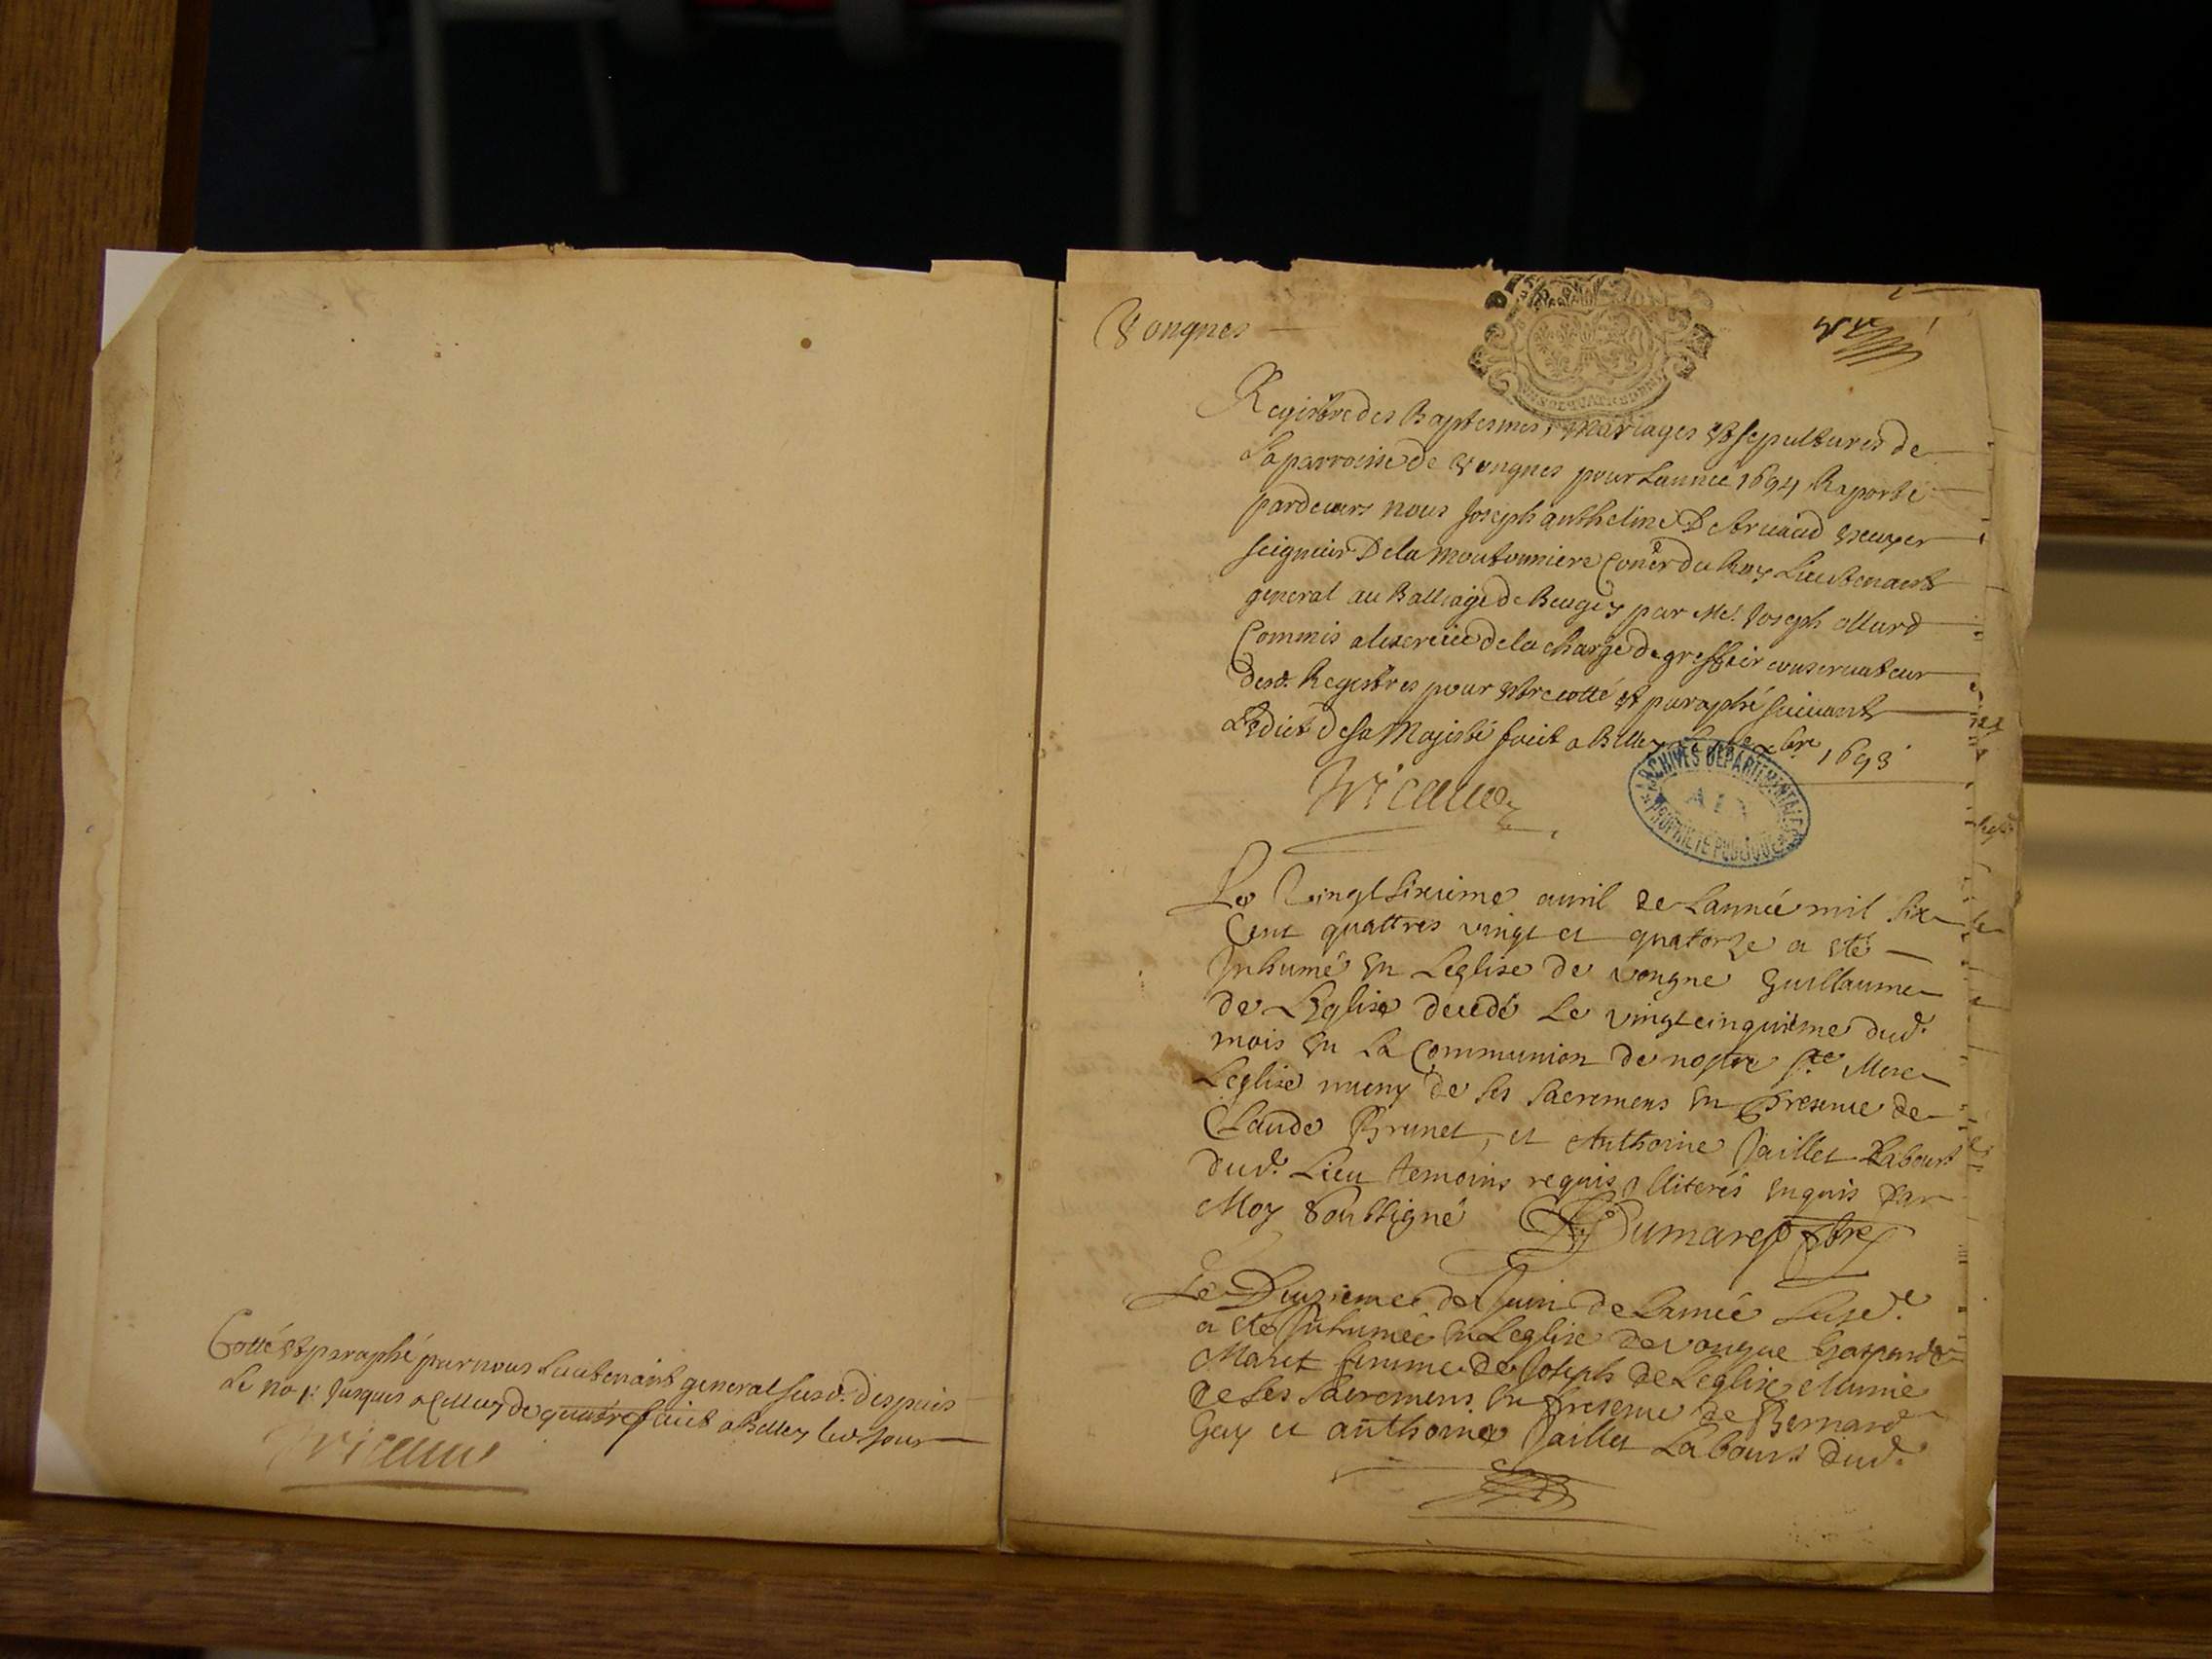 Cotté et paraphé par nous Lieutenant general susd. despuis
Le no 1: Jusques a Celluy de quatre faict a Belley led jour
Vongnes
Registre des Baptesmes, mariages et sepultures de
la parroisse de Vongnes pour Lannée 1694 Raporté
pardevers nous Joseph anthelme escuyer
seigneur De la moutonniere Coner du Roy Lieutenant
general au Balliage de Beugey par Me. Joseph allard
Commis a lexercice de la charge de greffier conservateur
desd. Registres pour estre cotté et paraphé suivant
Ledict de sa Majesté faict a Belley 1693
ARCHIVES DEPARTEMENTALES
AIN
PROPRIETE PUBLIQUE
Le Vingt sixieme avril de Lannée mil six
Cent quattres vingt et quatorze a eté
Inhumé en Leglise de vongne Guillaume
de Leglise decedé Le vingt cinquieme dud.
mois en La Communion de nostre ste Mere
Leglise muny de ses sacremens en presence de
Claude Brunet, et Anthoine Jaillet Labours
dud. Lieu temoins requis Illiterés enquis par
Moy Soussigné Dumarest ptre
Le Deuzieme de Juin de Lannée susd.
a eté Inhumée en Leglise de vongne Gasparde
Maret femme de Joseph de Leglise Munie
de ses sacremens en presence de Bernard
Gay et anthoine Jaillet Labours dud.